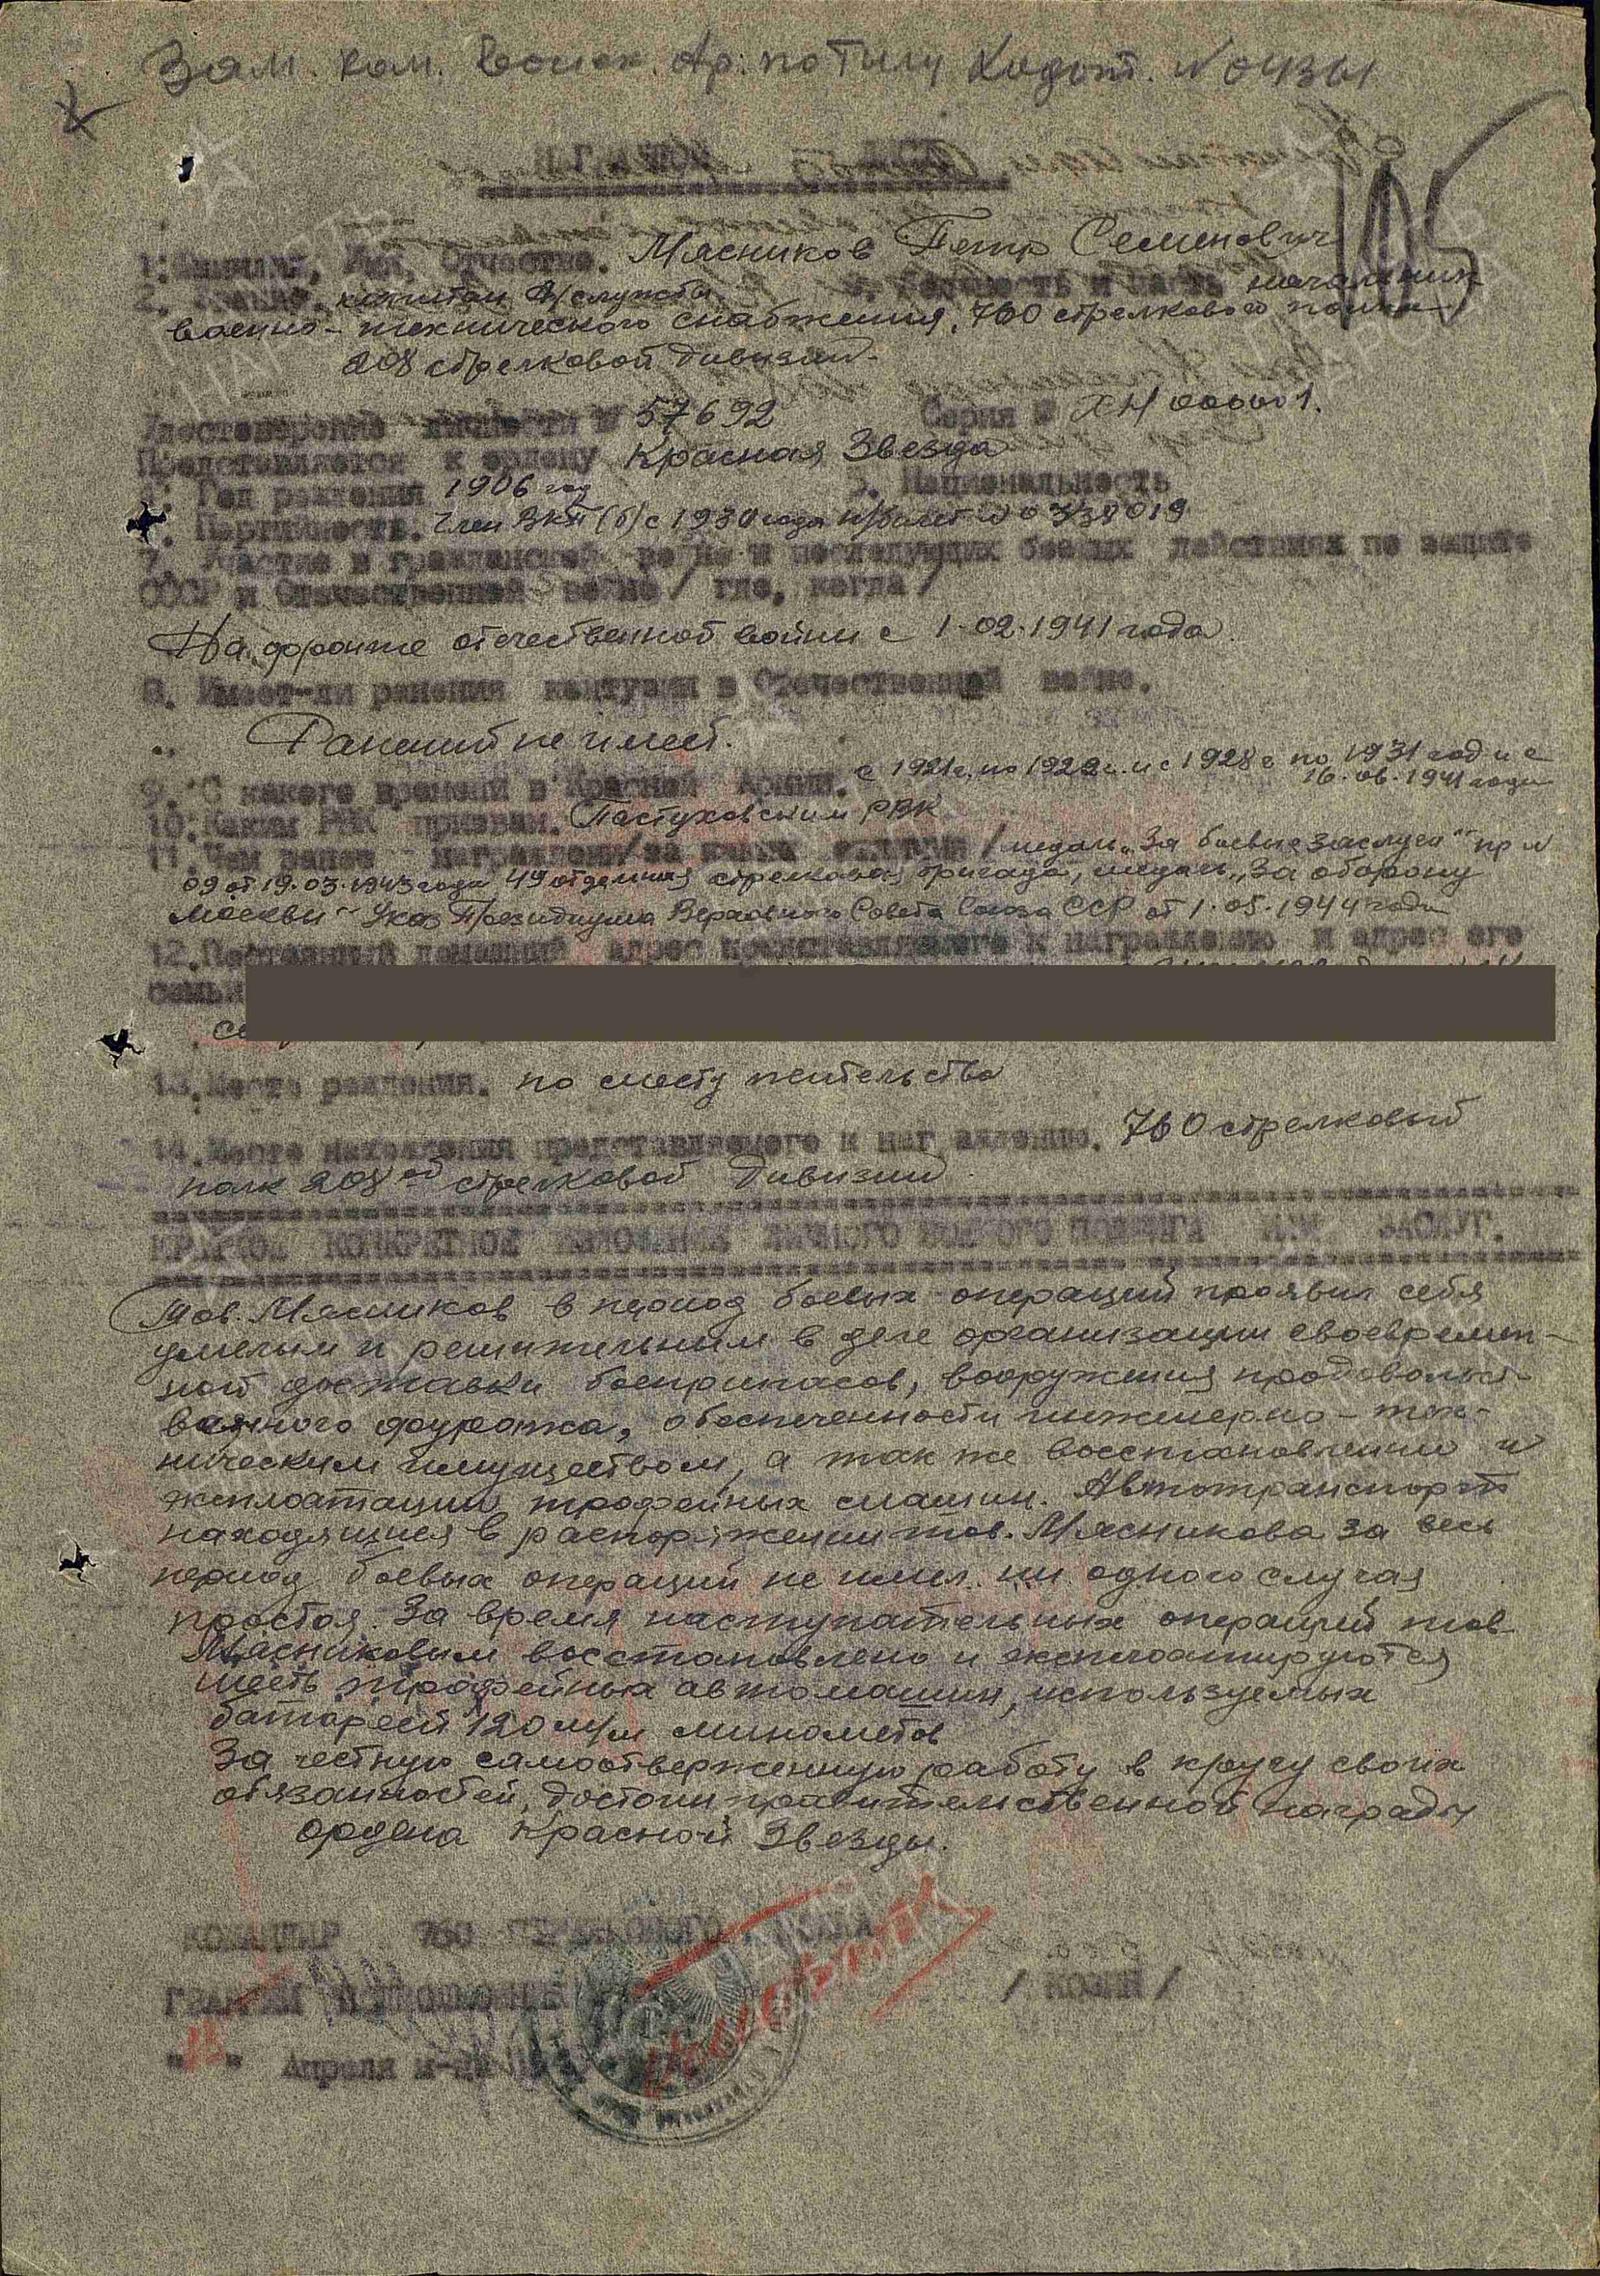 Зам. ком. войск. Ар. по Тылу Ходат. № 0431
105
1. Фамилия, Имя, Отчество. Мясников Петр Семенович
2. Звание. капитан а/службы 3. Должность и часть начальник
военно-технического снабжения, 760 стрелкового полка
208 стрелковой дивизии.
Удостоверение личности № 57692 Серия № ХН 000001.
Представляется к ордену Красная Звезда
4. Год рождения 1906 год 5. Национальность
6. Партийность. Член ВКП(б) с 1930 года п/билет №
7. Участие в гражданской войне и последующих боевых действиях по защите
СССР и Отечественной войне / где, когда /
На фронте отечественной войны с 1.02.1941 года.
8. Имеет-ли ранения контузии в Отечественной войне.
Ранений не имеет.
9. С какого времени в Красной Армии. с 1921 г. по 1922 г. и с 1928 г по 1931 год и с
16.06.1941 года
10. Каким РВК призван. Пастуховским РВК
11. Чем ранее награжден /за какие отличия/ медаль „За боевые заслуги" пр №
09 от 19.03.1943 года 49 отдельная стрелковая бригада, медаль „За оборону
Москвы" Указ Президиума Верховного Совета Союза ССР от 1.05.1944 года
12. Постоянный домашний адрес представляемого к награждению и адрес его
семьи
13. Место рождения. по месту жительства
14. Место нахождения представляемого к награждению. 760 стрелковый
полк 208ой стрелковой дивизии.
КРАТКОЕ КОНКРЕТНОЕ ИЗЛОЖЕНИЕ ЛИЧНОГО БОЕВОГО ПОДВИГА ИЛИ ЗАСЛУГ.
Тов. Мясников в период боевых операций проявил себя
умелым и решительным в деле организации своевремен-
ной доставки боеприпасов, вооружения продовольст-
венного фуража, обеспеченности инженерно-тех-
ническим имуществом, а так же восстановлении и
эксплоатации трофейных машин. Автотранспорт
находящиеся в распоряжении тов. Мясникова за весь
период боевых операций не имел ни одного случая
простоя. За время наступательных операций тов.
Мясниковым восстановлено и эксплоатируются
шесть трофейных автомашин, используемых
батареей 120 м/м минометов
За честную самоотверженную работу в кругу своих
обязанностей, достоин правительственной награды
ордена Красной Звезды.
КОМАНДИР 760 СТРЕЛКОВОГО ПОЛКА
ГВАРДИИ ПОДПОЛКОВНИК / КОЗИН /
" " Апреля м-ца